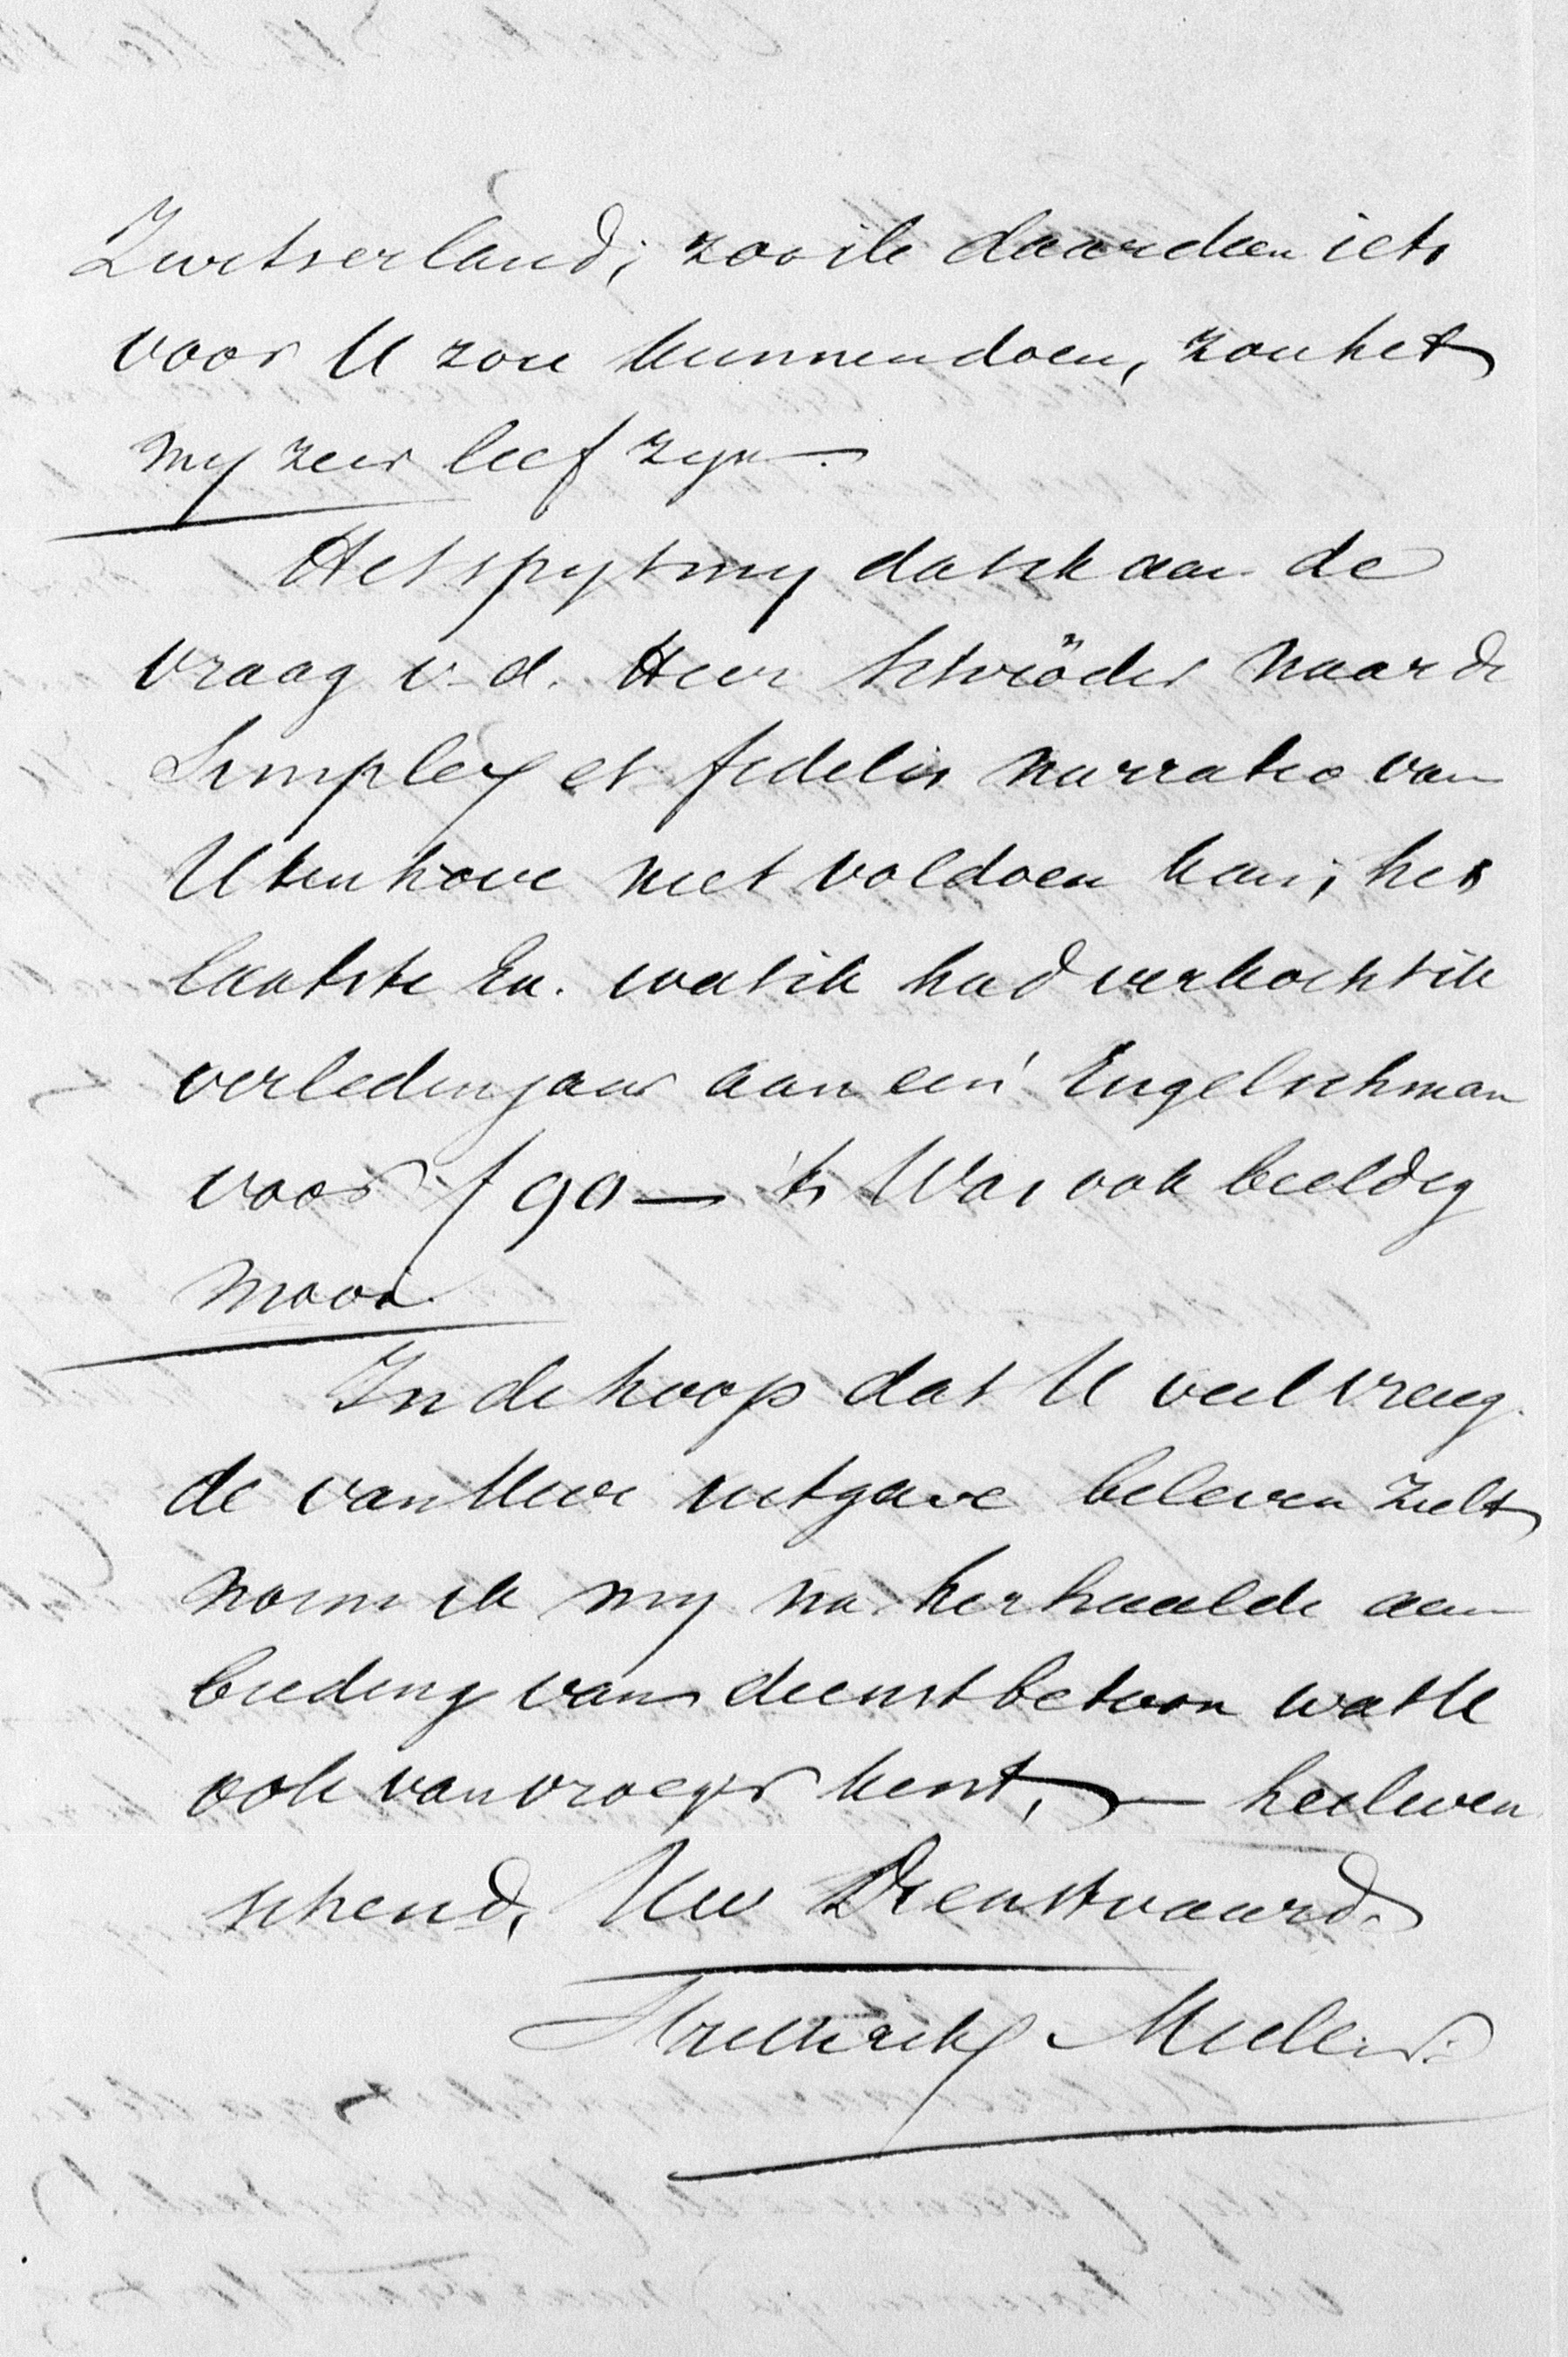 Zwitserland; zoo ik daardeen iets
voor U zou kunnen doen, zou het
my zeer lief zyn.
Het spyt my dat ik aan de
vraag v. d. Heer Schröder naar de
Simplex et fidelis narratio van
Utenhove niet voldoen kan; het
laatste Ex. wat ik had verkocht ik
verleden jaar aan een Engelschman
voor f 90 — 't Was ook beeldig
mooi.
In de hoop dat U veel vreug-
de van Uwe uitgave beleven zult
noem ik my na herhaalde aan
bieding van dienstbetoon wat U
ook van vroeger kent, — heilwen
schend, Uw Dienstvaard.
Frederik Muller.